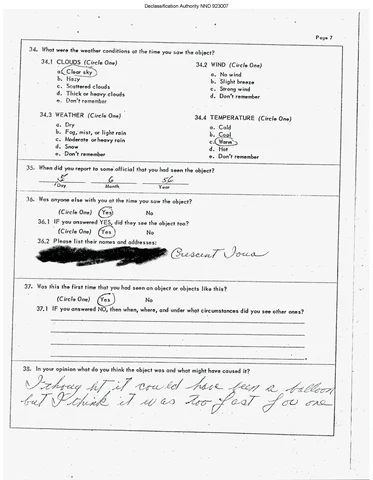 Declassification Authority NND 923007
Page 7
34. What were the weather conditions at the time you saw the object?
34.1 CLOUDS (Circle One)
a. Clear sky
b. Hazy
c. Scattered clouds
d. Thick or heavy clouds
e. Don't remember
34.2 WIND (Circle One)
a. No wind
b. Slight breeze
c. Strong wind
d. Don't remember
34.3 WEATHER (Circle One)
a. Dry
b. Fog, mist, or light rain
c. Moderate or heavy rain
d. Snow
e. Don't remember
34.4 TEMPERATURE (Circle One)
a. Cold
b. Cool
c. Warm
d. Hot
e. Don't remember
35. When did you report to some official that you had seen the object?
5 6 56
Day Month Year
36. Was anyone else with you at the time you saw the object?
(Circle One) Yes No
36.1 IF you answered YES, did they see the object too?
(Circle One) Yes No
36.2 Please list their names and addresses:
Crescent Iowa
37. Was this the first time that you had seen an object or objects like this?
(Circle One) Yes No
37.1 IF you answered NO, then when, where, and under what circumstances did you see other ones?
38. In your opinion what do you think the object was and what might have caused it?
I thought it could have been a balloon
but I think it was too fast for one